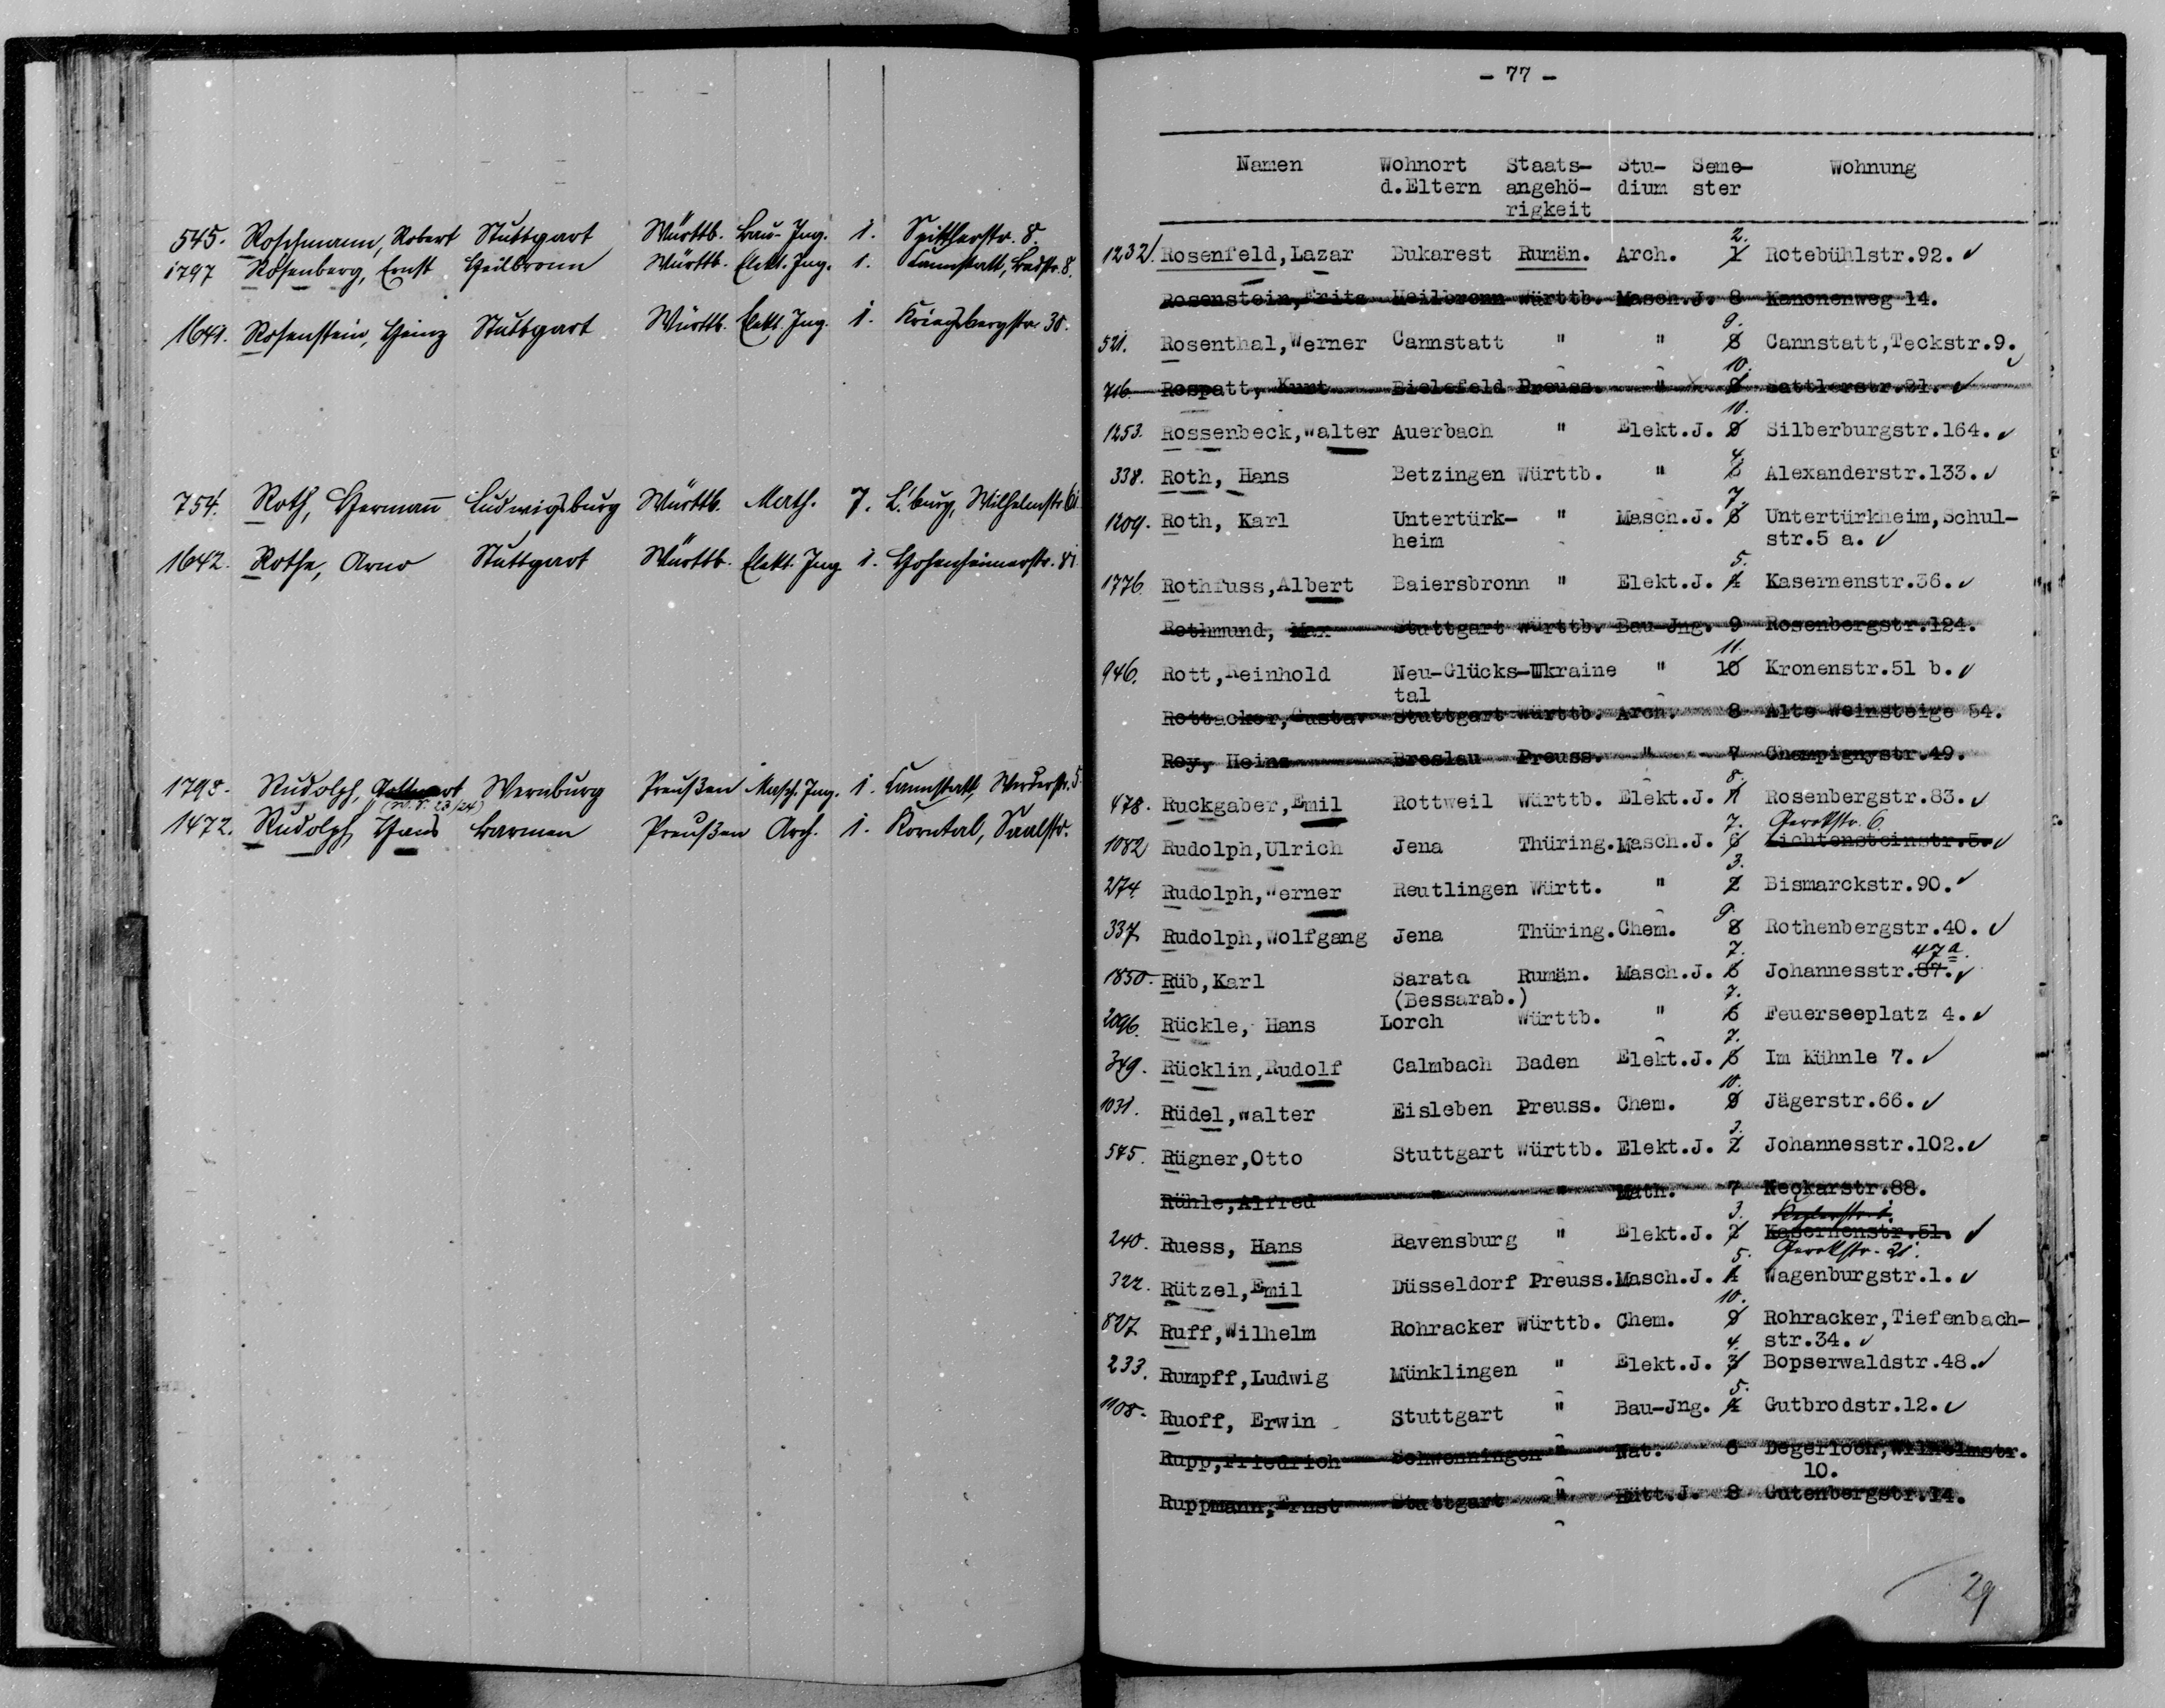 545. Roschmann, Robert Stuttgart Württb. Bau-Ing. 1. Spittlerstr. 8.
1797 Rosenberg, Ernst Heilbronn Württb. Elekt. Ing. 1. Cannstatt, Badstr. 8.
1649. Rosenstein, Heinz Stuttgart Württb. Elekt. Ing. 1. Kriegsbergstr. 30.
754. Roth, Hermann Ludwigsburg Württb. Math. 7. L'burg, Wilhelmstr.
1642. Rothe, Arno Stuttgart Württb. Elekt. Ing 1. Hohenheimerstr.
1798. Rudolph, Wernburg Preußen Masch. Ing. 1. Cannstatt, Werderstr. 5.
(W.S. 23/24)
1472. Rudolph, Hans Barmen Preußen Arch. 1. Korntal, Saalstr.
- 77 -
Namen Wohnort Staats- Stu- Seme- Wohnung
d.Eltern angehö- dium ster
rigkeit
2.
1232/. Rosenfeld, Lazar Bukarest Rumän. Arch. 1 Rotebühlstr.92. ✓
Rosenstein, Fritz Heilbronn Württb. Masch.J. 8 Kanonenweg 14.
9.
521. Rosenthal, Werner Cannstatt " " 8 Cannstatt, Teckstr.9. ✓
10.
716 Rospatt, Kurt Bielefeld Preuss. " 9 Sattlerstr.21. ✓
10.
1253. Rossenbeck, Walter Auerbach " Elekt.J. 9 Silberburgstr.164. ✓
4.
338. Roth, Hans Betzingen Württb. " 3 Alexanderstr.133. ✓
7.
1209. Roth, Karl Untertürk- " Masch.J. 6 Untertürkheim, Schul-
heim str.5 a. ✓
5.
1776. Rothfuss, Albert Baiersbronn " Elekt.J. 4 Kasernenstr.36. ✓
Rothmund, Max Stuttgart Württb. Bau-Jng. 9 Rosenbergstr.124.
11.
946. Rott, Reinhold Neu-Glücks-Ukraine " 10 Kronenstr.51 b. ✓
tal
Rottacker, Gustav Stuttgart Württb. Arch. 8 Alte Weinsteige 54.
Roy, Heinz Breslau Preuss. " 7 Champignystr.49.
478. Ruckgaber, Emil Rottweil Württb. Elekt.J. Rosenbergstr.83. ✓
7. Gerokstr. 6.
1082 Rudolph, Ulrich Jena Thüring. Masch.J. 6 Lichtensteinstr.5. ✓
3.
274. Rudolph, Werner Reutlingen Württ. " 2 Bismarckstr.90. ✓
9.
337. Rudolph, Wolfgang Jena Thüring. Chem. 8 Rothenbergstr.40. ✓
7. 47a.
1850. Rüb, Karl Sarata Rumän. Masch.J. 6 Johannesstr.87. ✓
(Bessarab.) 7.
2096. Rückle, Hans Lorch Württb. " 6 Feuerseeplatz 4. ✓
7.
349. Rücklin, Rudolf Calmbach Baden Elekt.J. 6 Im Kühnle 7. ✓
10.
1031. Rüdel, Walter Eisleben Preuss. Chem. 9 Jägerstr.66. ✓
3.
545. Rügner, Otto Stuttgart Württb. Elekt.J. 2 Johannesstr.102. ✓
Rühle, Alfred " " Math. 7 Neckarstr.88.
3.
240. Ruess, Hans Ravensburg " Elekt.J. 2 Kasernenstr.51. ✓
5. Gerokstr. 21.
322. Rützel, Emil Düsseldorf Preuss. Masch.J. 4 Wagenburgstr.1. ✓
10.
827. Ruff, Wilhelm Rohracker Württb. Chem. 9 Rohracker, Tiefenbach-
4. str.34. ✓
233. Rumpff, Ludwig Münklingen " Elekt.J. 3 Bopserwaldstr.48. ✓
5.
1108. Ruoff, Erwin Stuttgart " Bau-Jng. 4 Gutbrodstr.12. ✓
Rupp, Friedrich Schwenningen " Nat. 6 Degerloch, Wilhelmstr.
10.
Ruppmann, Ernst Stuttgart " Hütt.J. 8 Gutenbergstr.14.
29